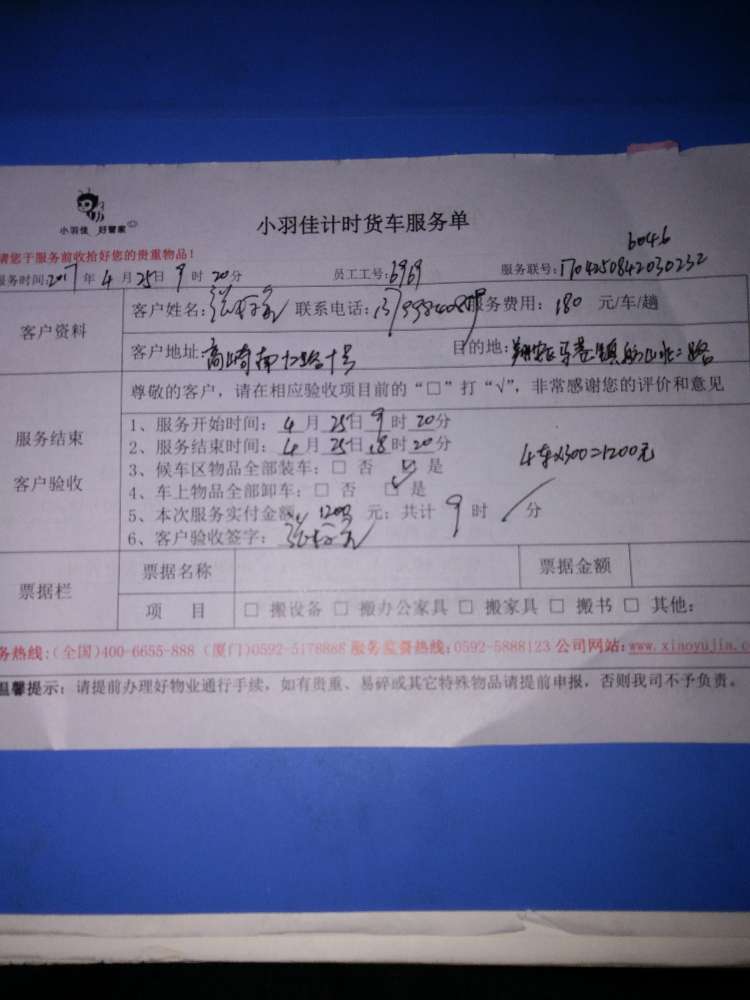 小羽佳 好管家
小羽佳计时货车服务单
6046
请您于服务前收拾好您的贵重物品！
服务时间:2017年4月25日9时20分 员工工号:6969 服务联号:1704250842030232
客户资料
客户姓名: 联系电话: 服务费用: 180 元/车/趟
客户地址:高崎南十二路十号 目的地:翔安区马巷镇舫山北二路
尊敬的客户，请在相应验收项目前的“□”打“√”，非常感谢您的评价和意见
服务结束
客户验收
1、服务开始时间: 4月25日9时20分
2、服务结束时间: 4月25日18时20分
3、候车区物品全部装车: □ 否 ☑ 是
4车x300=1200元
4、车上物品全部卸车: □ 否 ☑ 是
5、本次服务实付金额: 1200 元: 共计 9 时 / 分
6、客户验收签字:
票据栏
票据名称 票据金额
项 目 □ 搬设备 □ 搬办公家具 □ 搬家具 □ 搬书 □ 其他:
务热线:(全国)400-6655-888 (厦门)0592-5178868 服务监督热线:0592-5888123 公司网站:www.xiaoyujia.c
温馨提示: 请提前办理好物业通行手续，如有贵重、易碎或其它特殊物品请提前申报，否则我司不予负责。